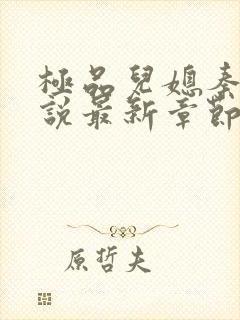 極品兒媳秦
說最新章節
原哲夫